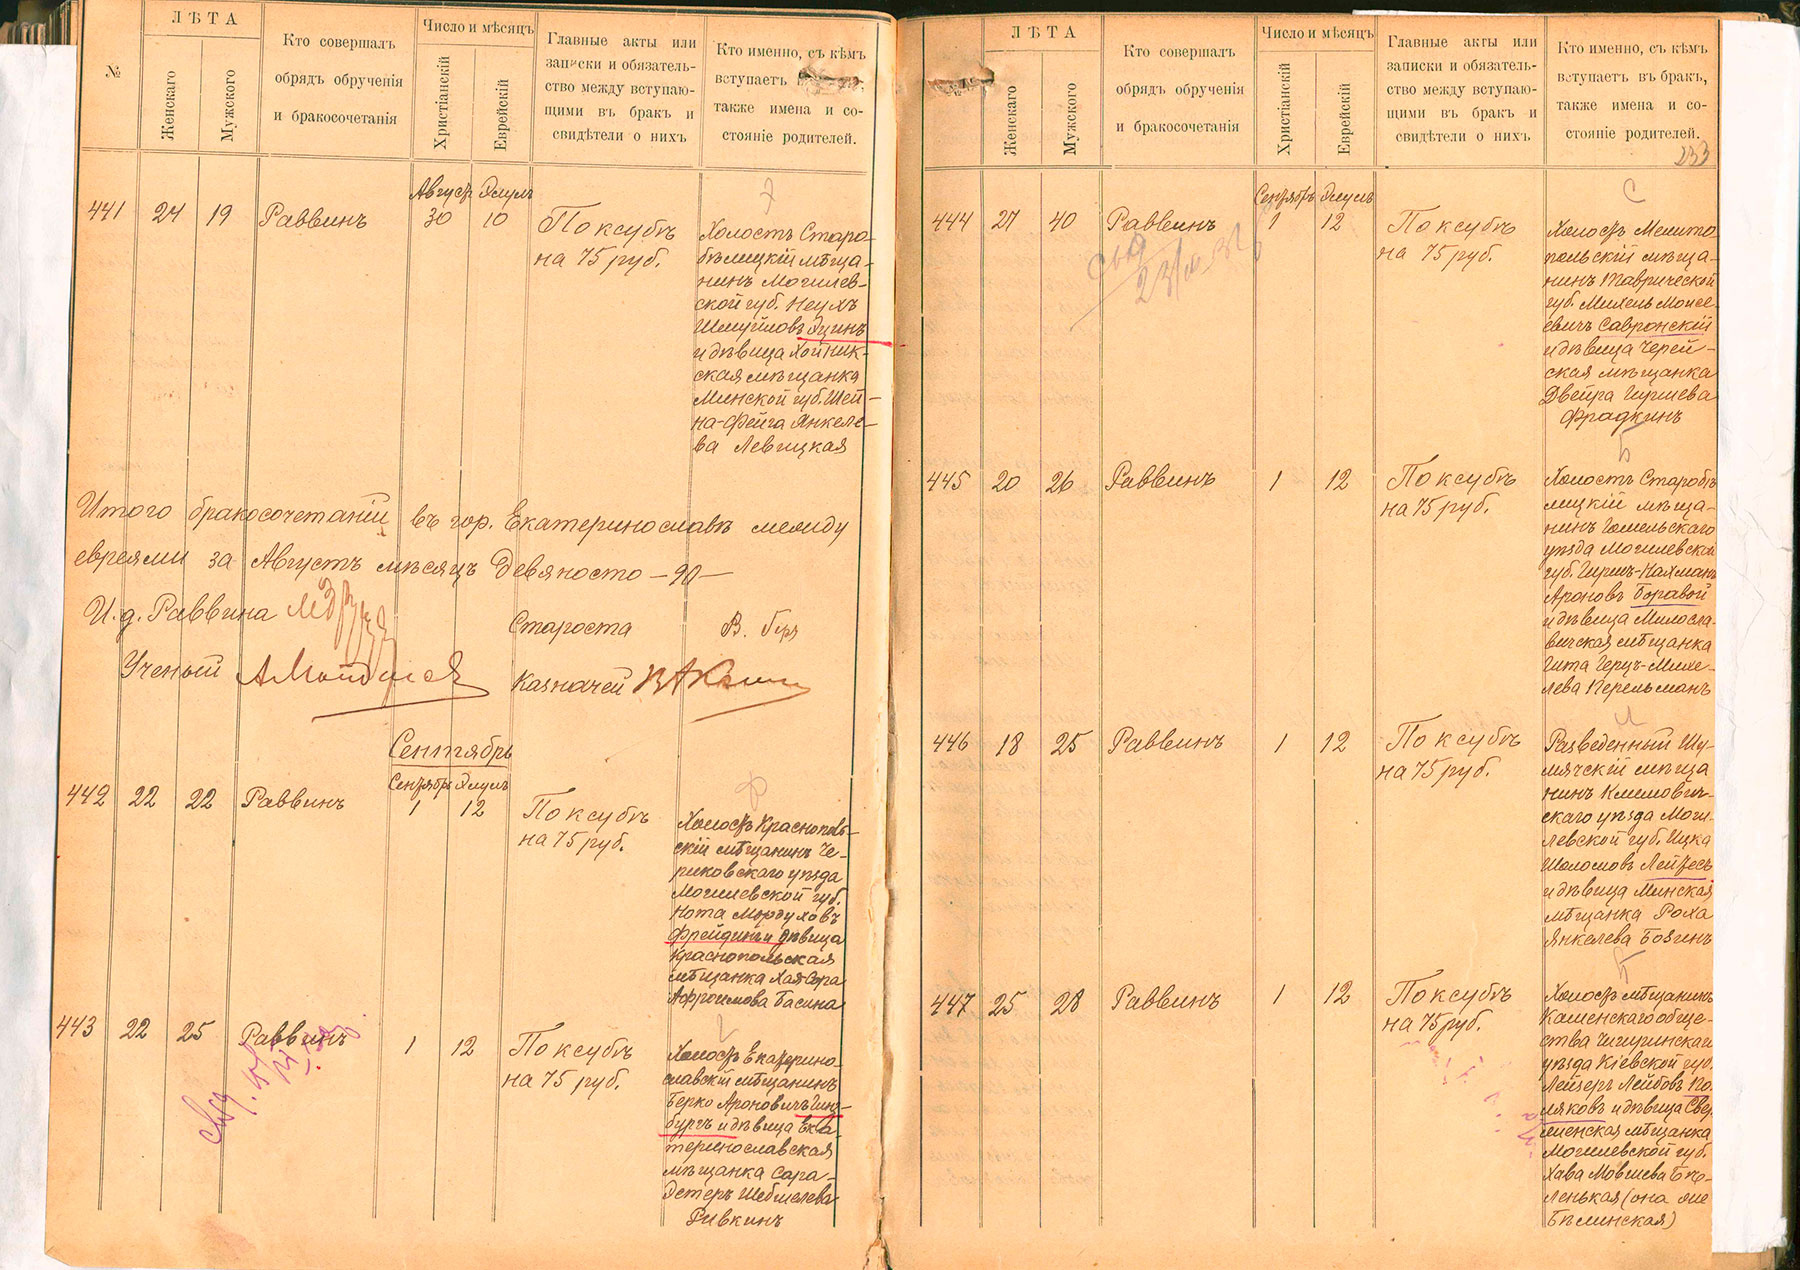 №
ЛѢТА
Женскаго
Мужского
Кто совершалъ
обрядъ обрученія
и бракосочетанія
Число и мѣсяцъ
Христіанскій
Еврейскій
Главные акты или
записки и обязатель-
ство между вступаю-
щими въ бракъ и
свидѣтели о нихъ
Кто именно, съ кѣмъ
вступаетъ
также имена и со-
стояніе родителей.
Августъ Элулъ
441 24 19 Раввинъ 30 10
По ксубѣ
на 75 руб.
Холостъ Старо-
бѣлицкій мѣща-
нинъ Могилев-
ской губ. Неухъ
Шмуйловъ Эдинъ
и дѣвица Хойник-
ская мѣщанка
Минской губ. Шей-
на-Фейга Янкеле-
ва Левицкая
Итого бракосочетаній въ гор. Екатеринославѣ между
евреями за Августъ мѣсяцъ девяносто -90-
И. д. Раввина
Староста
Ученый
Казначей
Сентябрь
Сентябрь Элулъ
442 22 22 Раввинъ 1 12
По ксубѣ
на 75 руб.
Холостъ Краснополь-
скій мѣщанинъ Че-
риковскаго уѣзда
Могилевской губ.
Нота Мордуховъ
Фрейдинъ и дѣвица
Краснопольская
мѣщанка Хая-Сора
Афроимова Басина
443 22 25 Раввинъ 1 12
По ксубѣ
на 75 руб.
Холостъ Екатерино-
славскій мѣщанинъ
Берко Ароновичъ Гинз-
бургъ и дѣвица Ека-
теринославская
мѣщанка Сара-
Эстеръ Шебшелева
Ривкинъ
ЛѢТА
Женскаго
Мужского
Кто совершалъ
обрядъ обрученія
и бракосочетанія
Число и мѣсяцъ
Христіанскій
Еврейскій
Главные акты или
записки и обязатель-
ство между вступаю-
щими въ бракъ и
свидѣтели о нихъ
Кто именно, съ кѣмъ
вступаетъ въ бракъ,
также имена и со-
стояніе родителей.
233
Сентябрь Элулъ
С
444 27 40 Раввинъ 1 12
По ксубѣ
на 75 руб.
Холостъ Мелито-
польскій мѣща-
нинъ Таврической
губ. Михель Моисе-
евичъ Савронскій
и дѣвица Черей-
ская мѣщанка
Двейра Гиршева
Фрадкинъ
Б
445 20 26 Раввинъ 1 12
По ксубѣ
на 75 руб.
Холостъ Старобѣ-
лицкій мѣща-
нинъ Гомельскаго
уѣзда Могилевской
губ. Гиршъ-Нахманъ
Ароновъ Боравой
и дѣвица Милосла-
вичская мѣщанка
Гита Герцъ-Михе-
лева Перельманъ
Л
446 18 25 Раввинъ 1 12
По ксубѣ
на 75 руб.
Разведенный Шу-
мячскій мѣща
нинъ Климович-
скаго уѣзда Моги-
левской губ. Ицка
Шоломовъ Лейтесъ
и дѣвица Минская
мѣщанка Роха
Янкелева Бовгинъ
447 25 28 Раввинъ 1 12
По ксубѣ
на 75 руб.
Холостъ мѣщанинъ
Каменскаго обще-
ства Чигиринскаго
уѣзда Кіевской губ.
Лейзеръ Лейбовъ По-
ляковъ и дѣвица Свер-
женская мѣщанка
Могилевской губ.
Хава Мовшева Бѣ-
ленькая (она же
Бѣлинская)